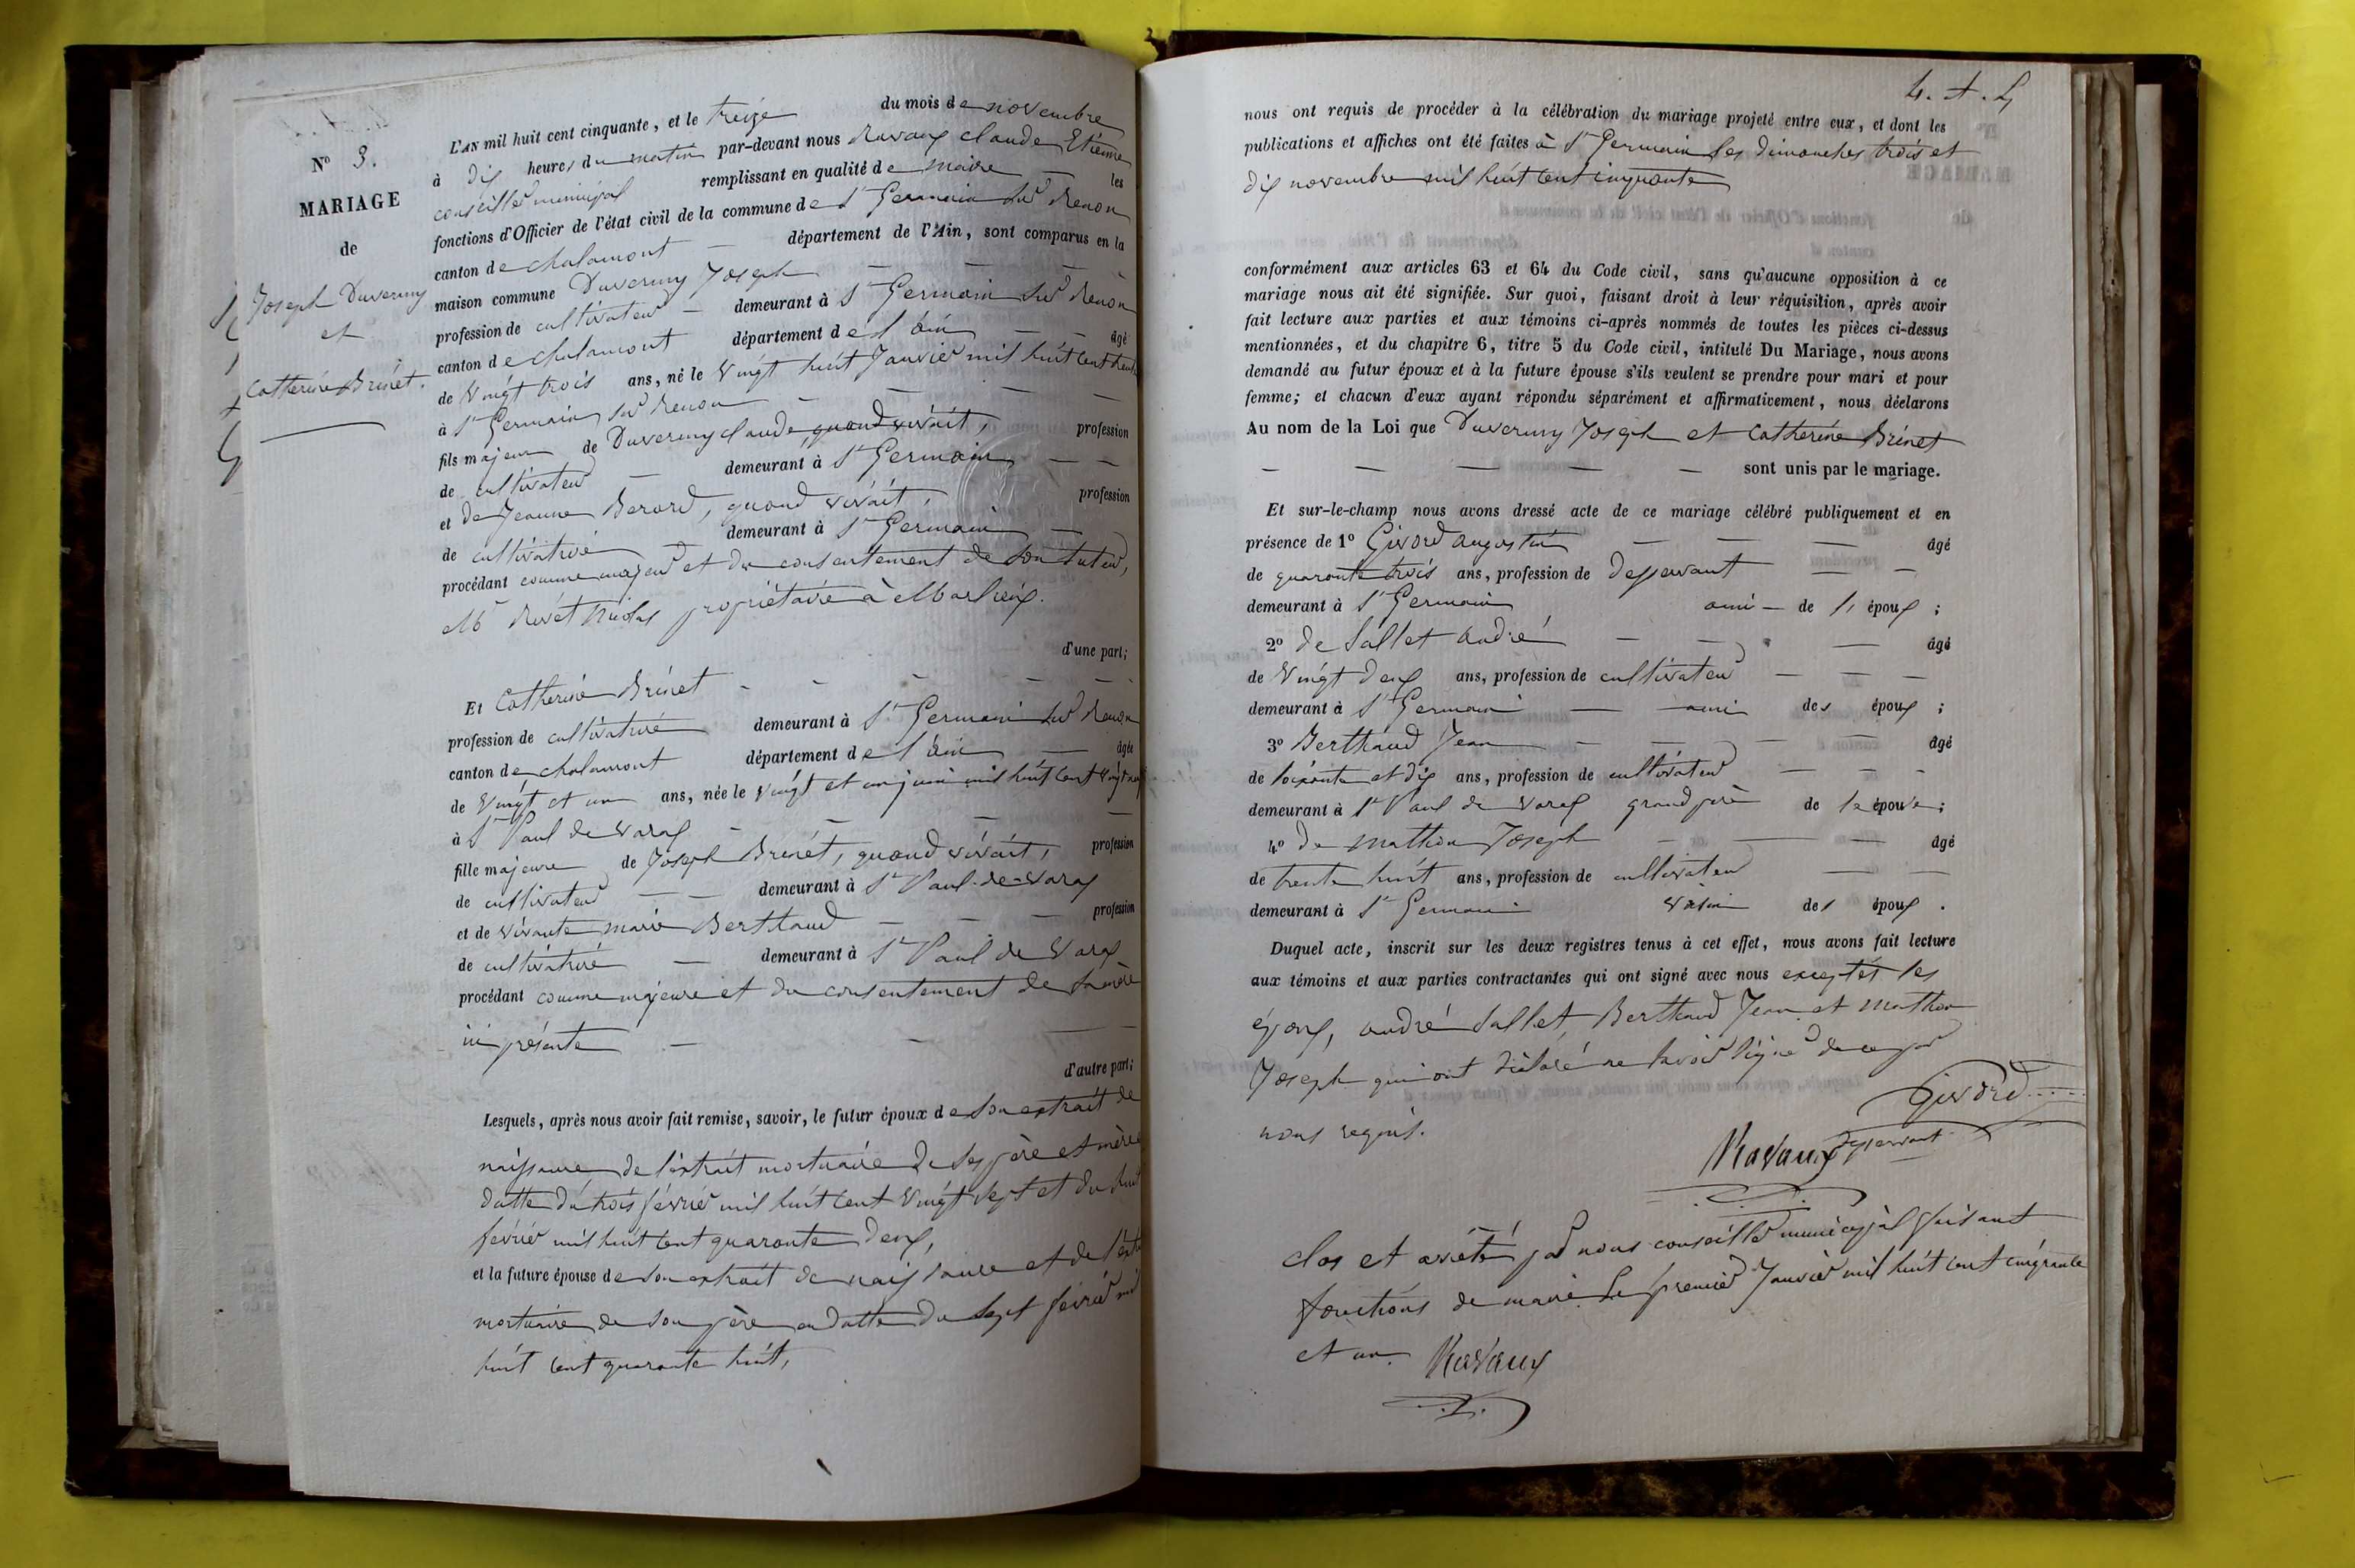 N° 3.
MARIAGE
de
Joseph Duverny
et
Catherine Brinet.
L'AN mil huit cent cinquante, et le treize du mois de novembre
à dix heures du matin par-devant nous Ravaux claude Etienne
conseiller municipal remplissant en qualité de maire les
fonctions d'Officier de l'état civil de la commune de St Germain sur Renon
canton de chalamont département de l'Ain, sont comparus en la
maison commune Duverny Joseph
profession de cultivateur demeurant à St Germain sur Renon
canton de chalamont département de l'ain âgé
de Vingt trois ans, né le Vingt huit Janvier mil huit cent
à St Germain sur Renon
fils majeur de Duverny claude, quand vivait, profession
de cultivateur demeurant à St Germain
et de Jeanne Berard, quand vivait, profession
de cultivatrice demeurant à St Germain
procédant comme majeur et du consentement de son tuteur,
propriétaire à Marlieux.
d'une part;
Et Catherine Brinet
profession de cultivatrice demeurant à St Germain sur Renon
canton de chalamont département de l'ain âgée
de Vingt et un ans, née le Vingt et un juin mil huit cent
à St Paul de Varax
fille majeure de Joseph Brinet, quand vivait, profession
de cultivateur demeurant à St Paul-de-Varax
et de vivante marie Berthaud profession
de cultivatrice demeurant à St Paul de Varax
procédant comme majeure et du consentement de sa mère
ici présente
d'autre part;
Lesquels, après nous avoir fait remise, savoir, le futur époux de son extrait de
naissance, de l'extrait mortuaire de ses père et mère
datte du trois février mil huit cent Vingt sept et du huit
février mil huit cent quarante deux,
et la future épouse de son extrait de naissance et de
mortuaire de son père en datte du sept février mil
huit cent quarante huit,
nous ont requis de procéder à la célébration du mariage projeté entre eux, et dont les
publications et affiches ont été faites à St Germain les dimanches trois et
dix novembre mil huit cent cinquante
conformément aux articles 63 et 64 du Code civil, sans qu'aucune opposition à ce
mariage nous ait été signifiée. Sur quoi, faisant droit à leur réquisition, après avoir
fait lecture aux parties et aux témoins ci-après nommés de toutes les pièces ci-dessus
mentionnées, et du chapitre 6, titre 5 du Code civil, intitulé Du Mariage, nous avons
demandé au futur époux et à la future épouse s'ils veulent se prendre pour mari et pour
femme; et chacun d'eux ayant répondu séparément et affirmativement, nous déclarons
Au nom de la Loi que Duverny Joseph et Catherine Brinet
sont unis par le mariage.
Et sur-le-champ nous avons dressé acte de ce mariage célébré publiquement et en
présence de 1° Givord augustin âgé
de quarante trois ans, profession de desservant
demeurant à St Germain ami de l' époux ;
2° de Sallet andré âgé
de Vingt deux ans, profession de cultivateur
demeurant à St Germain ami des époux ;
3° Berthaud Jean âgé
de soixante et dix ans, profession de cultivateur
demeurant à St Paul de Varax grand père de l'épouse ;
4° de mathon Joseph âgé
de trente huit ans, profession de cultivateur
demeurant à St Germain voisin des époux .
Duquel acte, inscrit sur les deux registres tenus à cet effet, nous avons fait lecture
aux témoins et aux parties contractantes qui ont signé avec nous exceptés les
époux, andré Sallet, Berthaud Jean et Mathon
Joseph qui ont déclaré ne savoir signer de ce par
nous requis.
Givord
desservant
Ravaux
Clos et arrêté par nous conseiller municipal faisant
fonctions de maire Le premier Janvier mil huit cent cinquante
et un. Ravaux